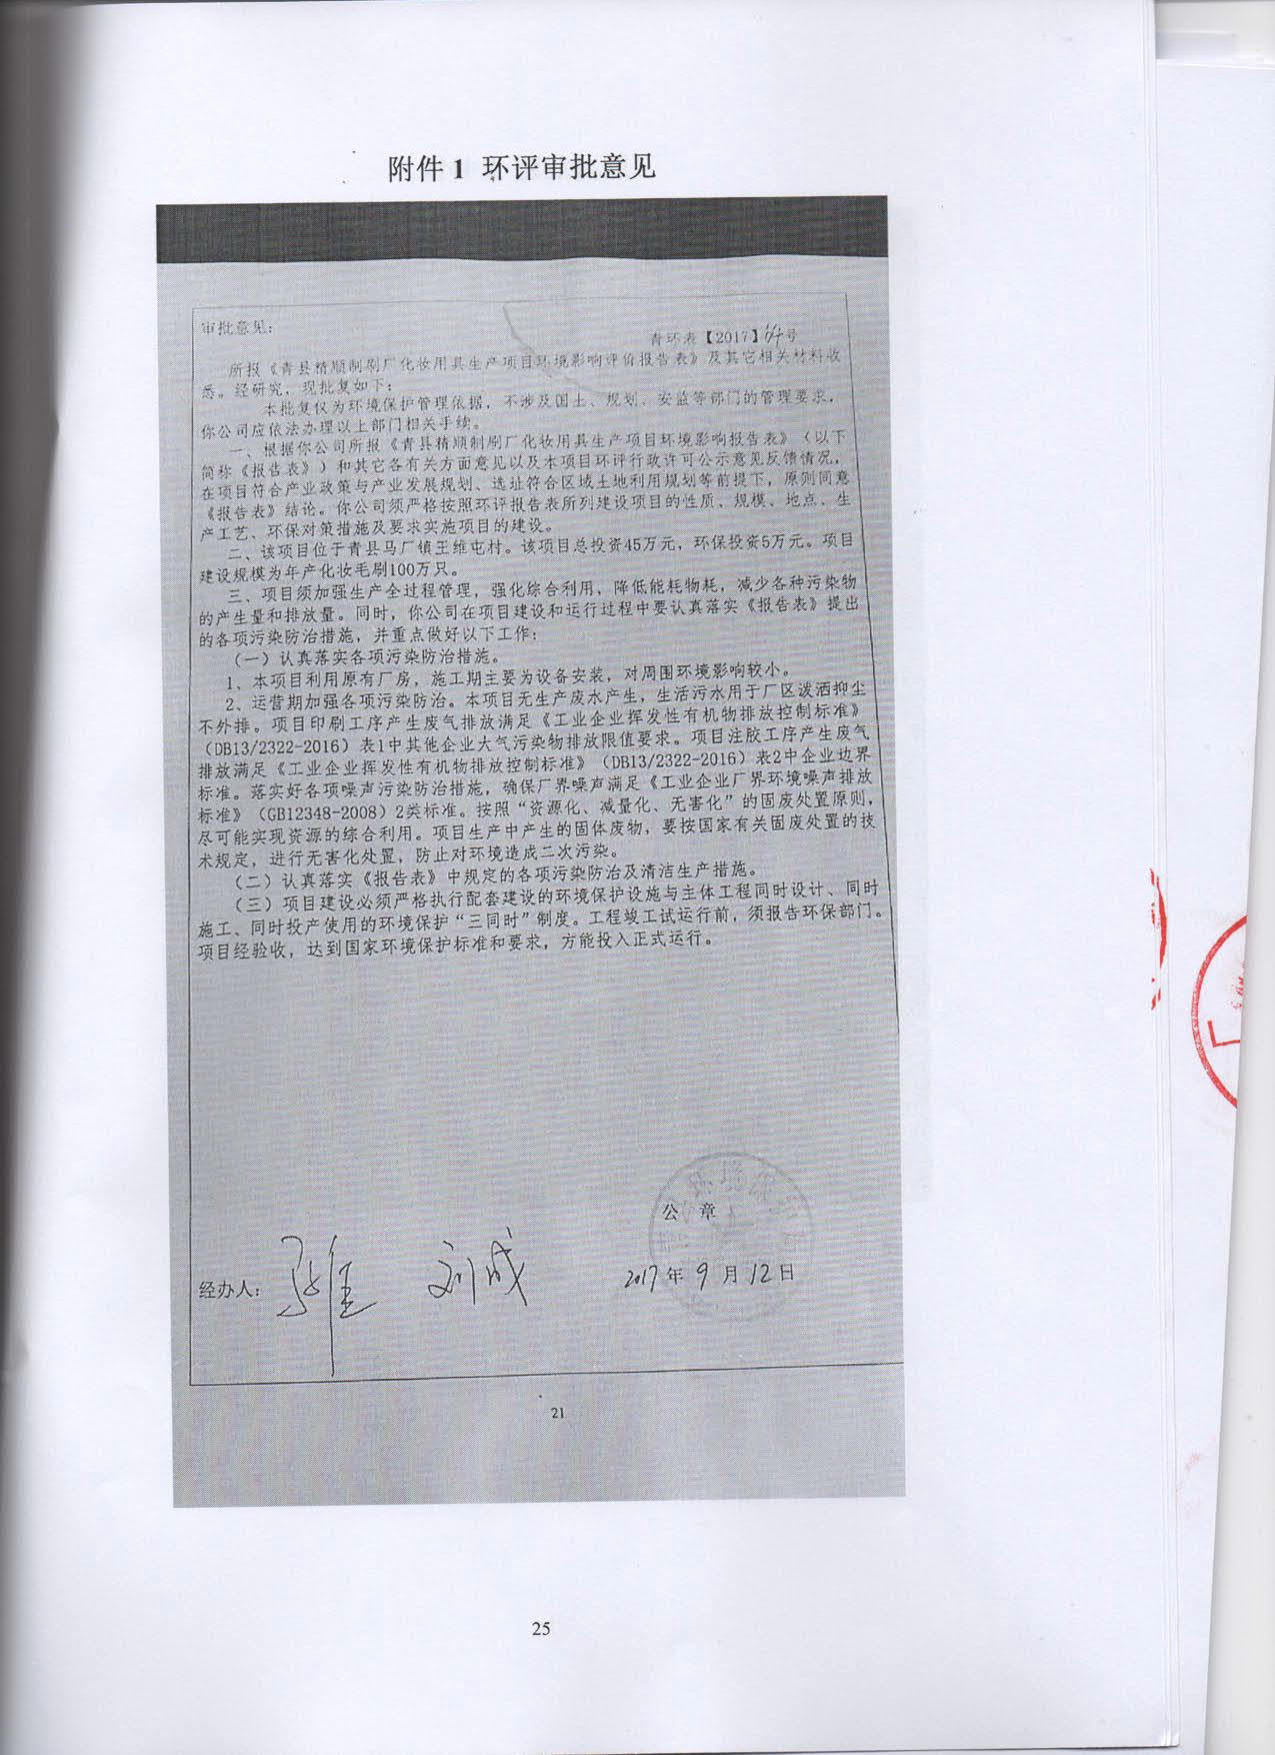 附件1 环评审批意见
审批意见:
青环表【2017】号
所报《青县精顺制刷厂化妆用具生产项目环境影响评价报告表》及其它相关材料收
悉。经研究，现批复如下:
本批复仅为环境保护管理依据，不涉及国土、规划、安监等部门的管理要求，
你公司应依法办理以上部门相关手续。
一、根据你公司所报《青县精顺制刷厂化妆用具生产项目环境影响报告表》（以下
简称《报告表》）和其它各有关方面意见以及本项目环评行政许可公示意见反馈情况，
在项目符合产业政策与产业发展规划、选址符合区域土地利用规划等前提下，原则同意
《报告表》结论。你公司须严格按照环评报告表所列建设项目的性质、规模、地点、生
产工艺、环保对策措施及要求实施项目的建设。
二、该项目位于青县马厂镇王维屯村。该项目总投资45万元，环保投资5万元。项目
建设规模为年产化妆毛刷100万只。
三、项目须加强生产全过程管理，强化综合利用，降低能耗物耗，减少各种污染物
的产生量和排放量。同时，你公司在项目建设和运行过程中要认真落实《报告表》提出
的各项污染防治措施，并重点做好以下工作:
（一）认真落实各项污染防治措施。
1、本项目利用原有厂房，施工期主要为设备安装，对周围环境影响较小。
2、运营期加强各项污染防治。本项目无生产废水产生，生活污水用于厂区泼洒抑尘
不外排。项目印刷工序产生废气排放满足《工业企业挥发性有机物排放控制标准》
（DB13/2322-2016）表1中其他企业大气污染物排放限值要求。项目注胶工序产生废气
排放满足《工业企业挥发性有机物排放控制标准》（DB13/2322-2016）表2中企业边界
标准。落实好各项噪声污染防治措施，确保厂界噪声满足《工业企业厂界环境噪声排放
标准》（GB12348-2008）2类标准。按照“资源化、减量化、无害化”的固废处置原则，
尽可能实现资源的综合利用。项目生产中产生的固体废物，要按国家有关固废处置的技
术规定，进行无害化处置，防止对环境造成二次污染。
（二）认真落实《报告表》中规定的各项污染防治及清洁生产措施。
（三）项目建设必须严格执行配套建设的环境保护设施与主体工程同时设计、同时
施工、同时投产使用的环境保护“三同时”制度。工程竣工试运行前，须报告环保部门。
项目经验收，达到国家环境保护标准和要求，方能投入正式运行。
公 章
经办人: 刘成
2017年9月12日
21
25